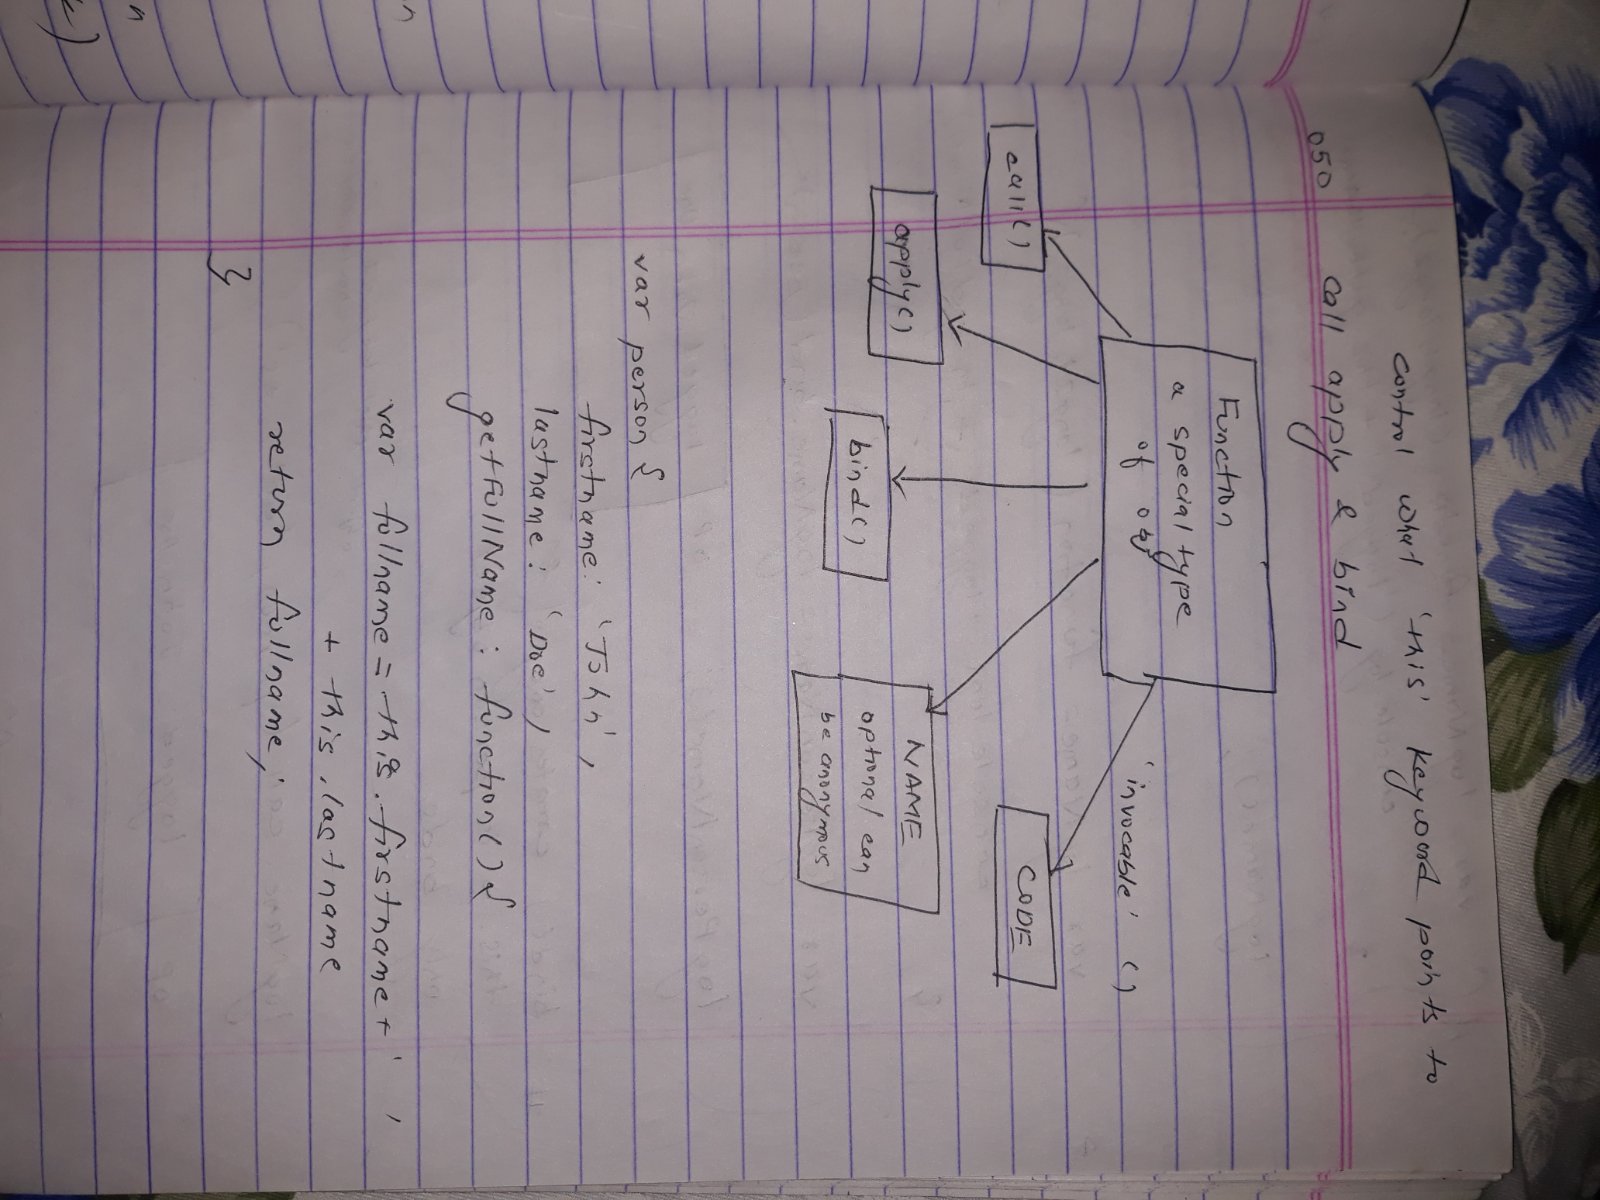 control what 'this' keyword points to
050 call apply & bind
Function
a special type
of obj
'invocable' ()
call()
CODE
apply()
NAME
optional can
be anonymous
bind()
var person {
firstname: 'John',
lastname: 'Doe',
getFullName: function(){
var fullname = this.firstname + ' '
+ this.lastname
return fullname;
}